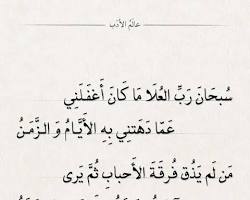 عالم الأدب
سُبحَانَ رَبِّ العُلَا مَا كَانَ أَغفَلَنِي
عَمَّا دَهَتنِي بِهِ الأَيَّامُ وَالزَّمَنُ
مَن لَم يَذُق فُرقَةَ الأَحبابِ ثُمَّ يَرى